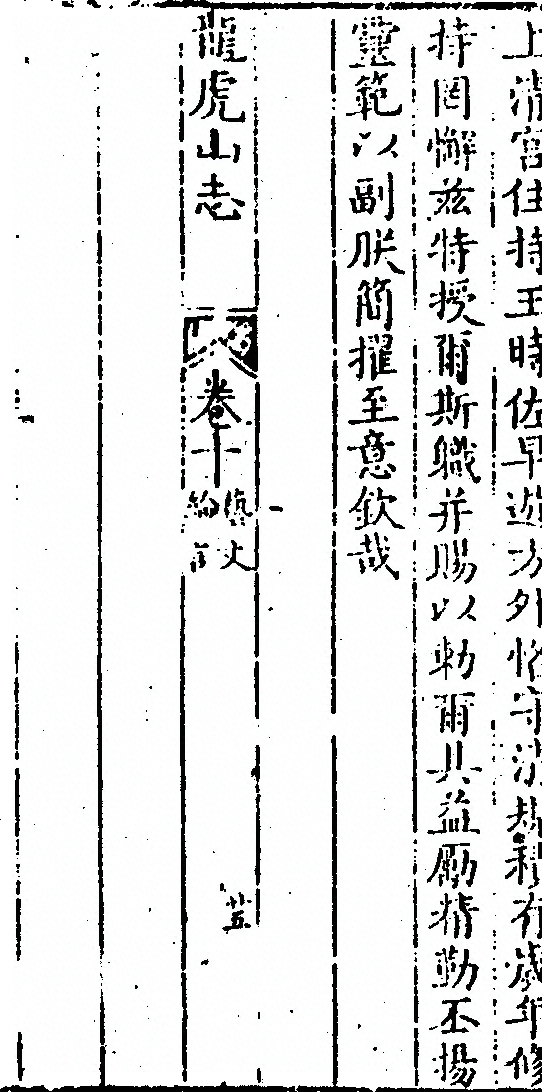 上清宮住持王時佐早遊方外恪守清規積有歲年修
持罔懈茲特授爾斯職并賜以勅爾其益勵精勤丕揚
靈範以副朕簡擢至意欽哉
龍虎山志
卷十
藝文
綸言